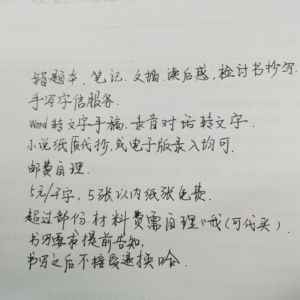 错题本、笔记、文稿、读后感,检讨书抄写.
手写字信服务.
Word转文字手稿.录音对话转文字.
小说纸质代抄,或电子版录入均可.
邮费自理.
5元/千字,5张以内纸张免费.
超过部份材料费需自理哦(可代买).
书写要求提前告知,
书写之后不接受退换哈.